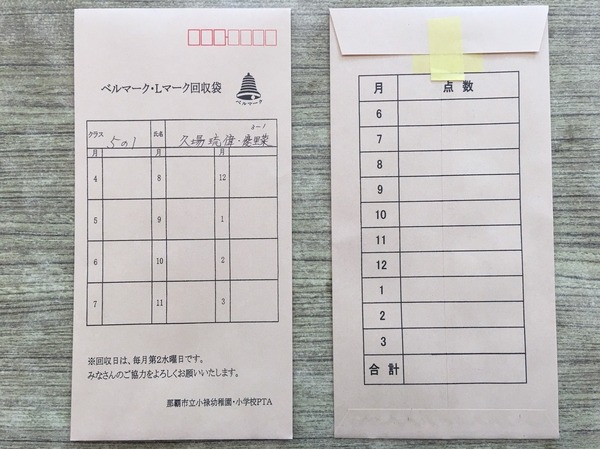 ベルマーク・Lマーク回収袋
ベルマーク
クラス 5の1 氏名 久場琉偉・愛里菜
2-1
月 月 月
4 8 12
5 9 1
6 10 2
7 11 3
※回収日は、毎月第2水曜日です。
みなさんのご協力をよろしくお願いいたします。
那覇市立小禄幼稚園・小学校PTA
月 点数
6
7
8
9
10
11
12
1
2
3
合計